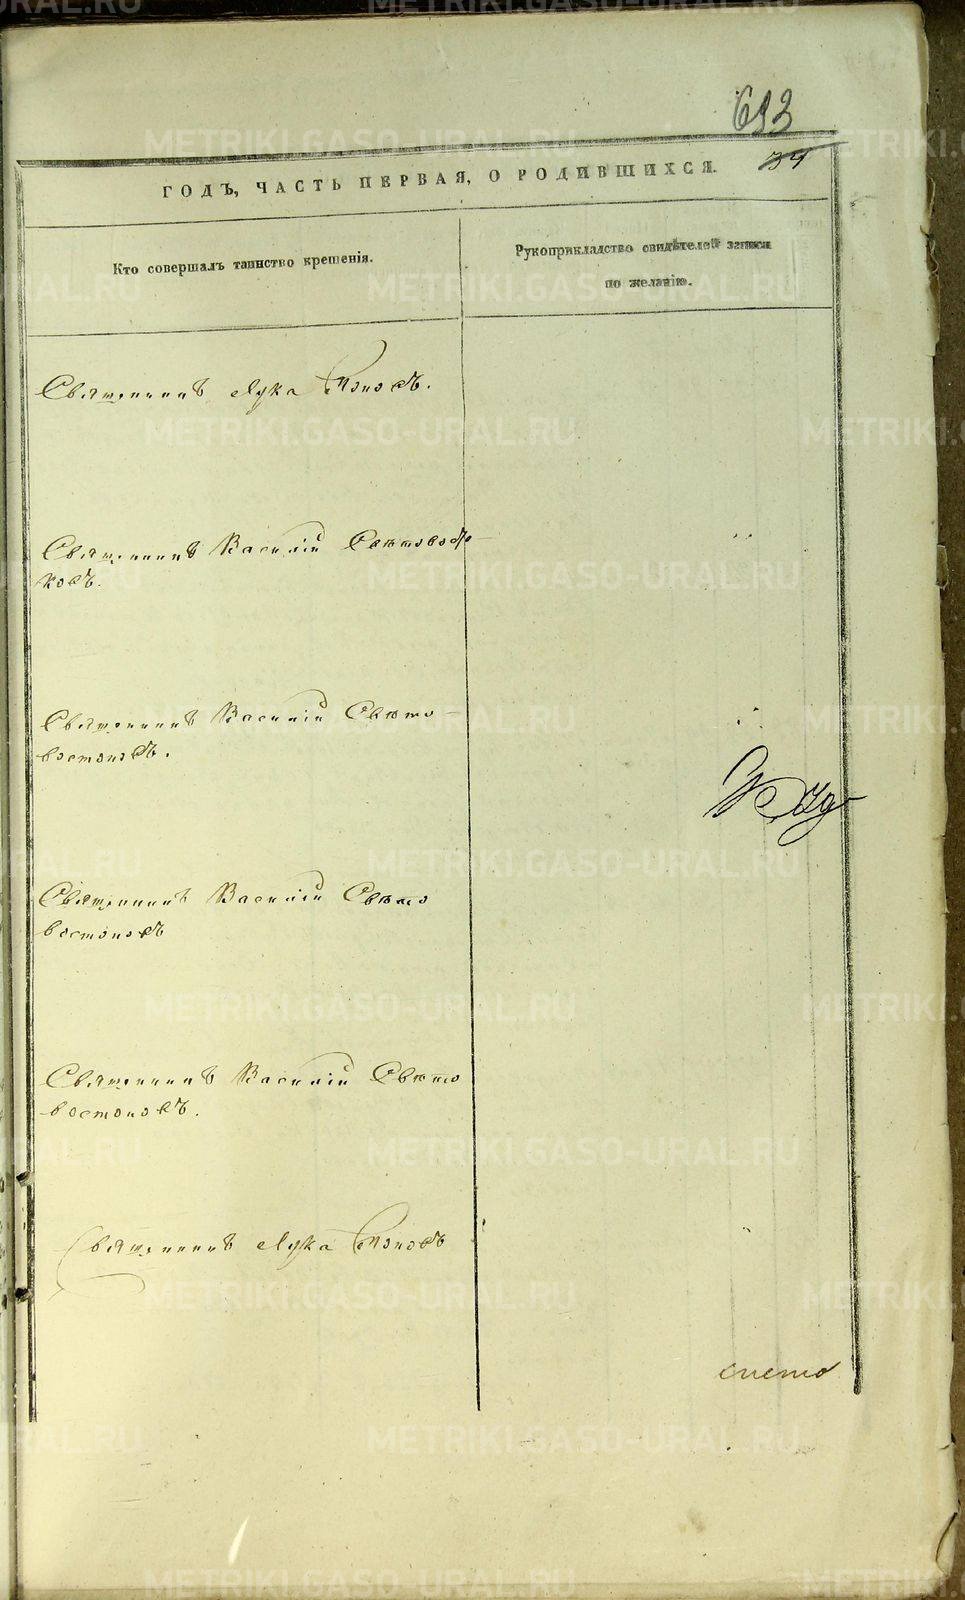 693
34
ГОДЪ, ЧАСТЬ ПЕРВАЯ, О РОДИВШИХСЯ.
Кто совершалъ таинство крещенія.
Рукоприкладство свидѣтелей записи
по желанію.
Священникъ Лука Поповъ.
Священникъ Василій
ковъ.
Священникъ Василій Свѣто-
востоковъ.
Священникъ Василій Свѣто
востоковъ
Священникъ Василій Свѣто
востоковъ.
Священникъ Лука Поповъ
METRIKI.GASO-URAL.RU